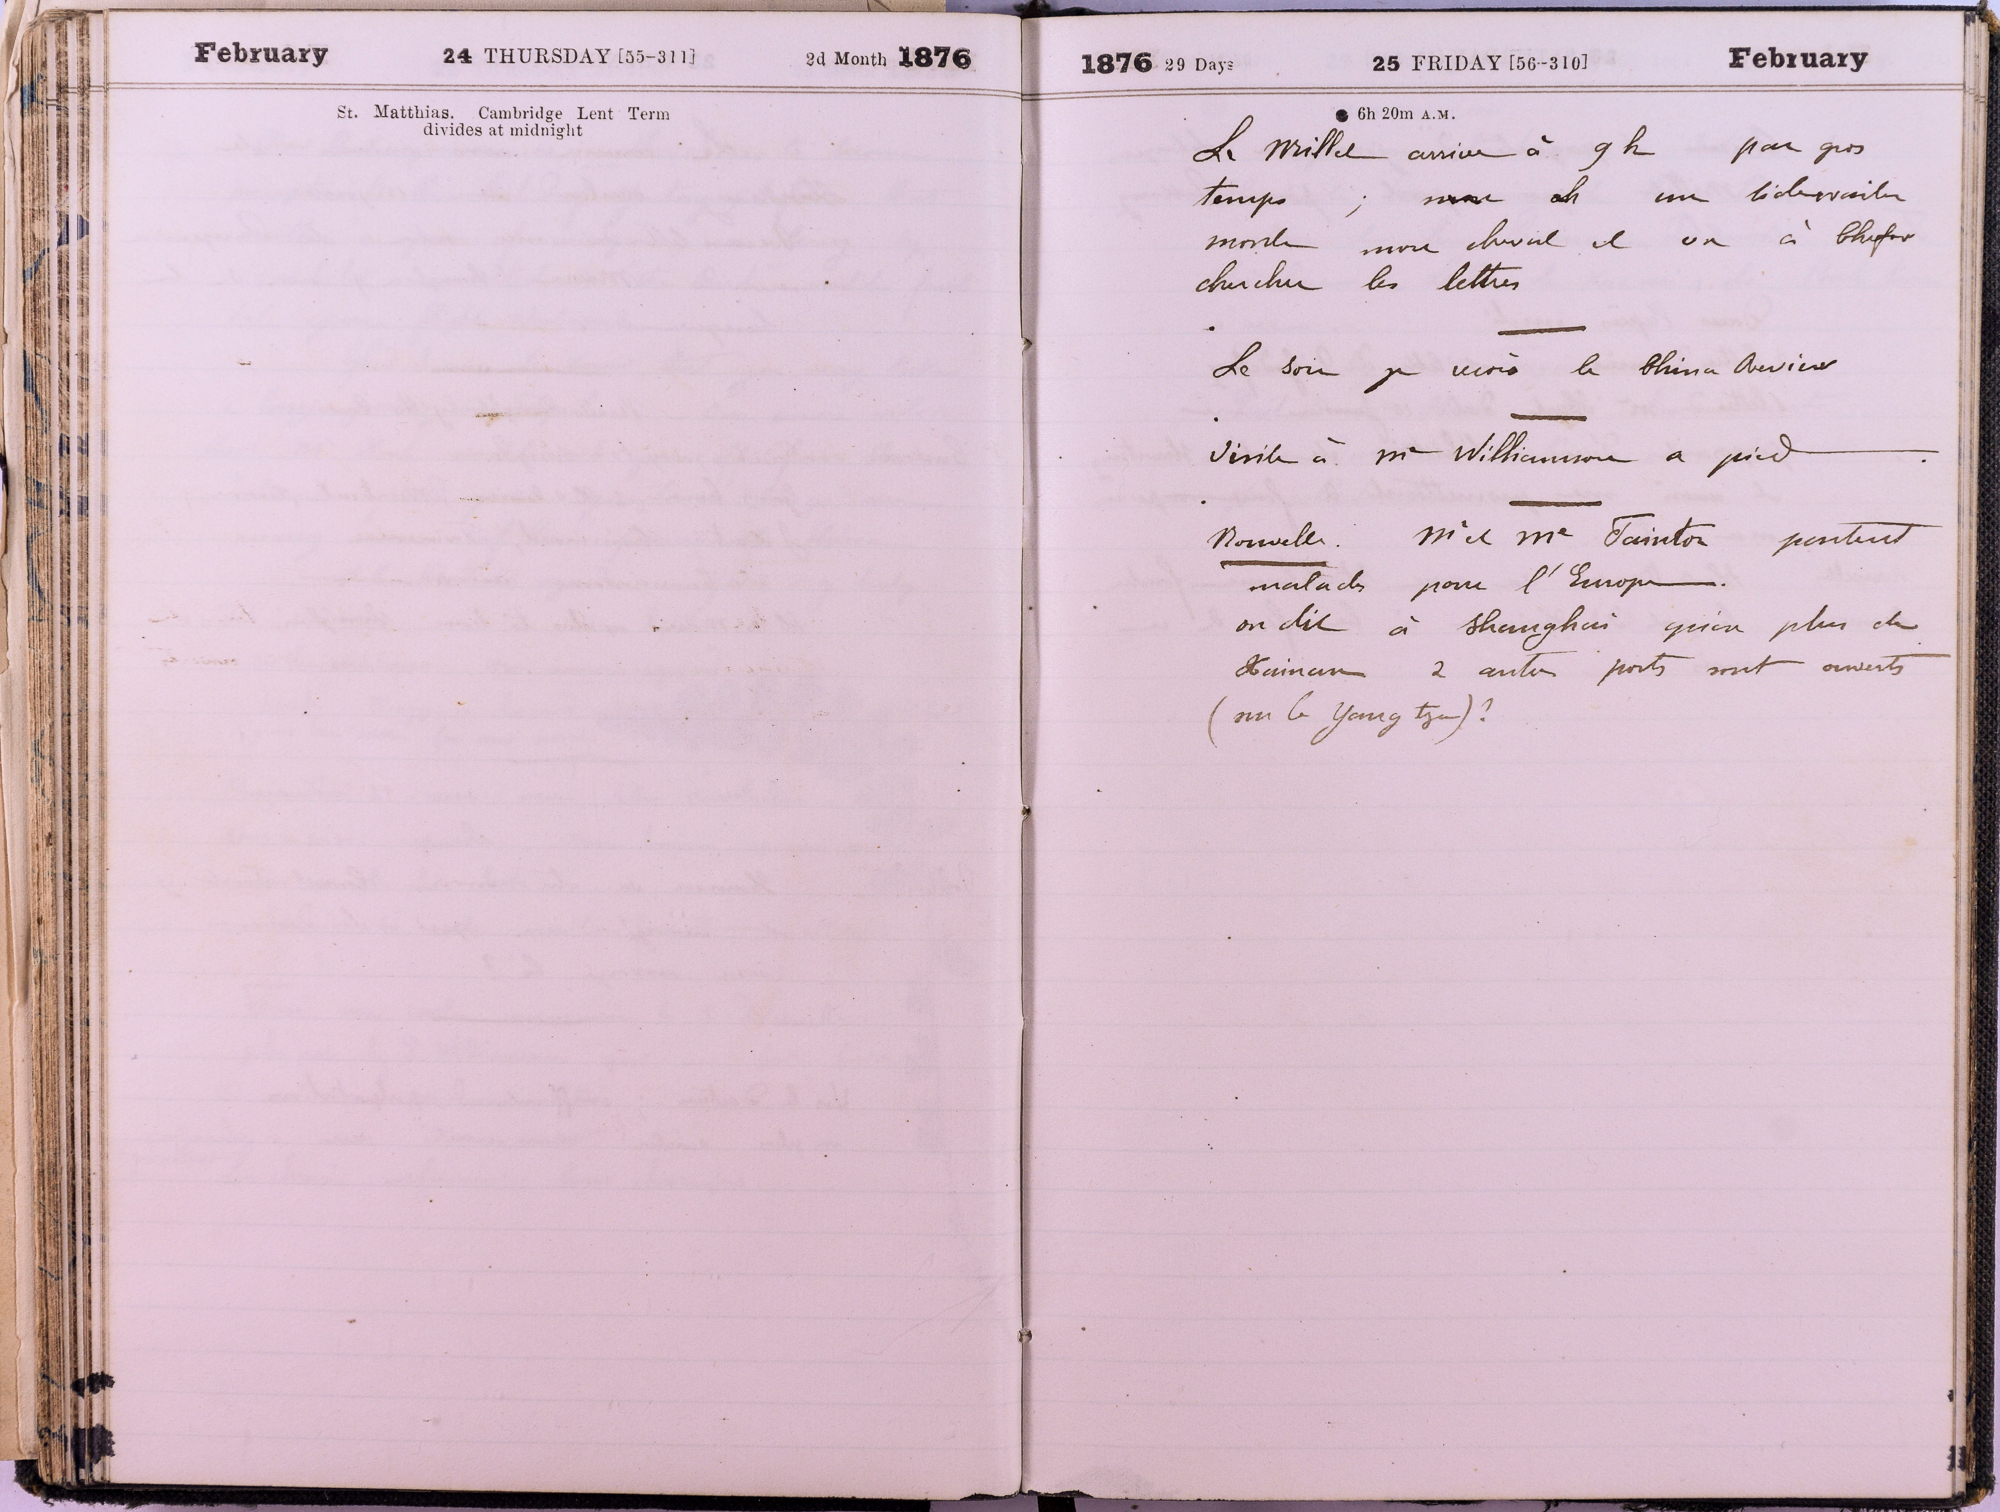 February 24 THURSDAY [55-311] 2d Month 1876
St. Matthias. Cambridge Lent Term
divides at midnight
1876 29 Days 25 FRIDAY [56-310] February
● 6h 20m A.M.
Le Millet arrive à 9 h par gros
temps ; un tidewaiter
monte mon cheval et va à Chefoo
chercher les lettres
Le soir je reçois le China Review
Visite à Me Williamson a pied
Nouvelle. Mr et Me Taintor partent
malades pour l'Europe.
on dit à Shanghai qu'en plus de
Hainan 2 autres ports sont ouverts
(sur le Yang tze)?